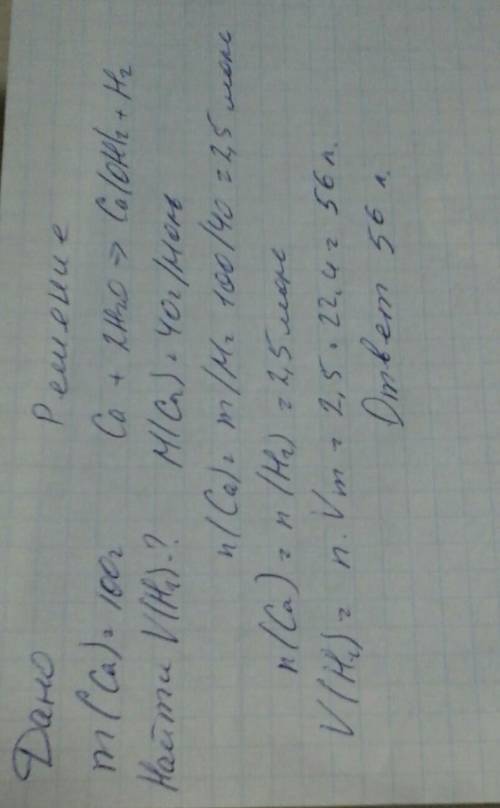 Дано
m(Ca)=100г
Найти V(H₂)-?
Решение
Ca + 2H₂O => Ca(OH)₂ + H₂
M(Ca)=40г/моль
n(Ca)= m/M= 100/40 = 2,5 моль
n(Ca) = n(H₂) = 2,5 моль
V(H₂)= n·Vm = 2,5·22,4= 56 л.
Ответ 56 л.